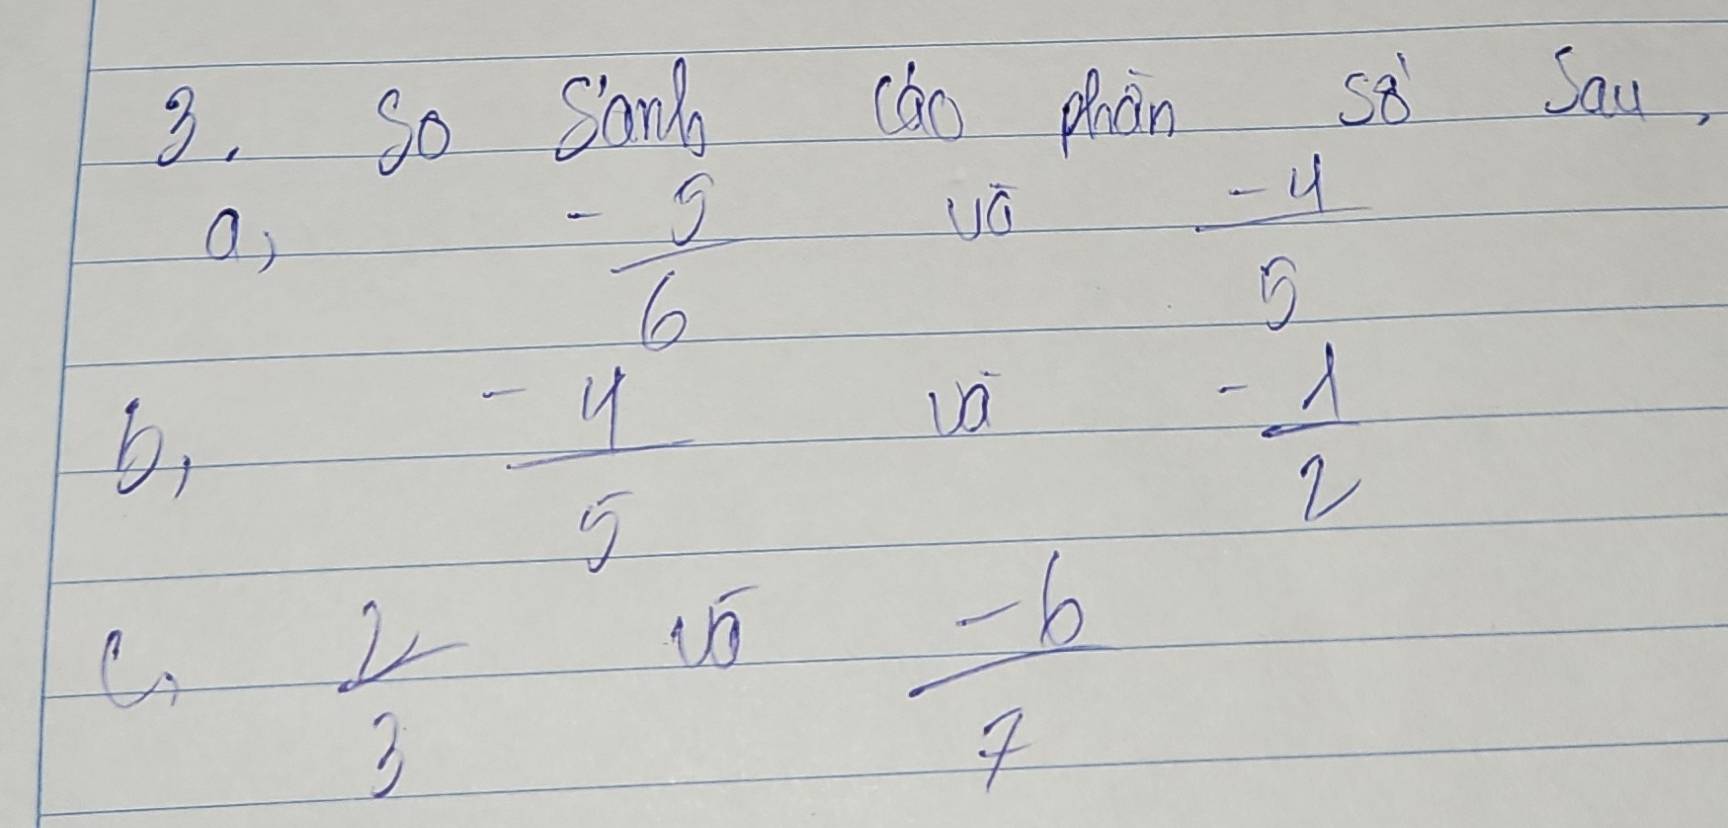 3. So sánh các phân số sau,
a, -5/6 và -4/5
b, -4/5 và -1/2
c, 2/3 và -6/7